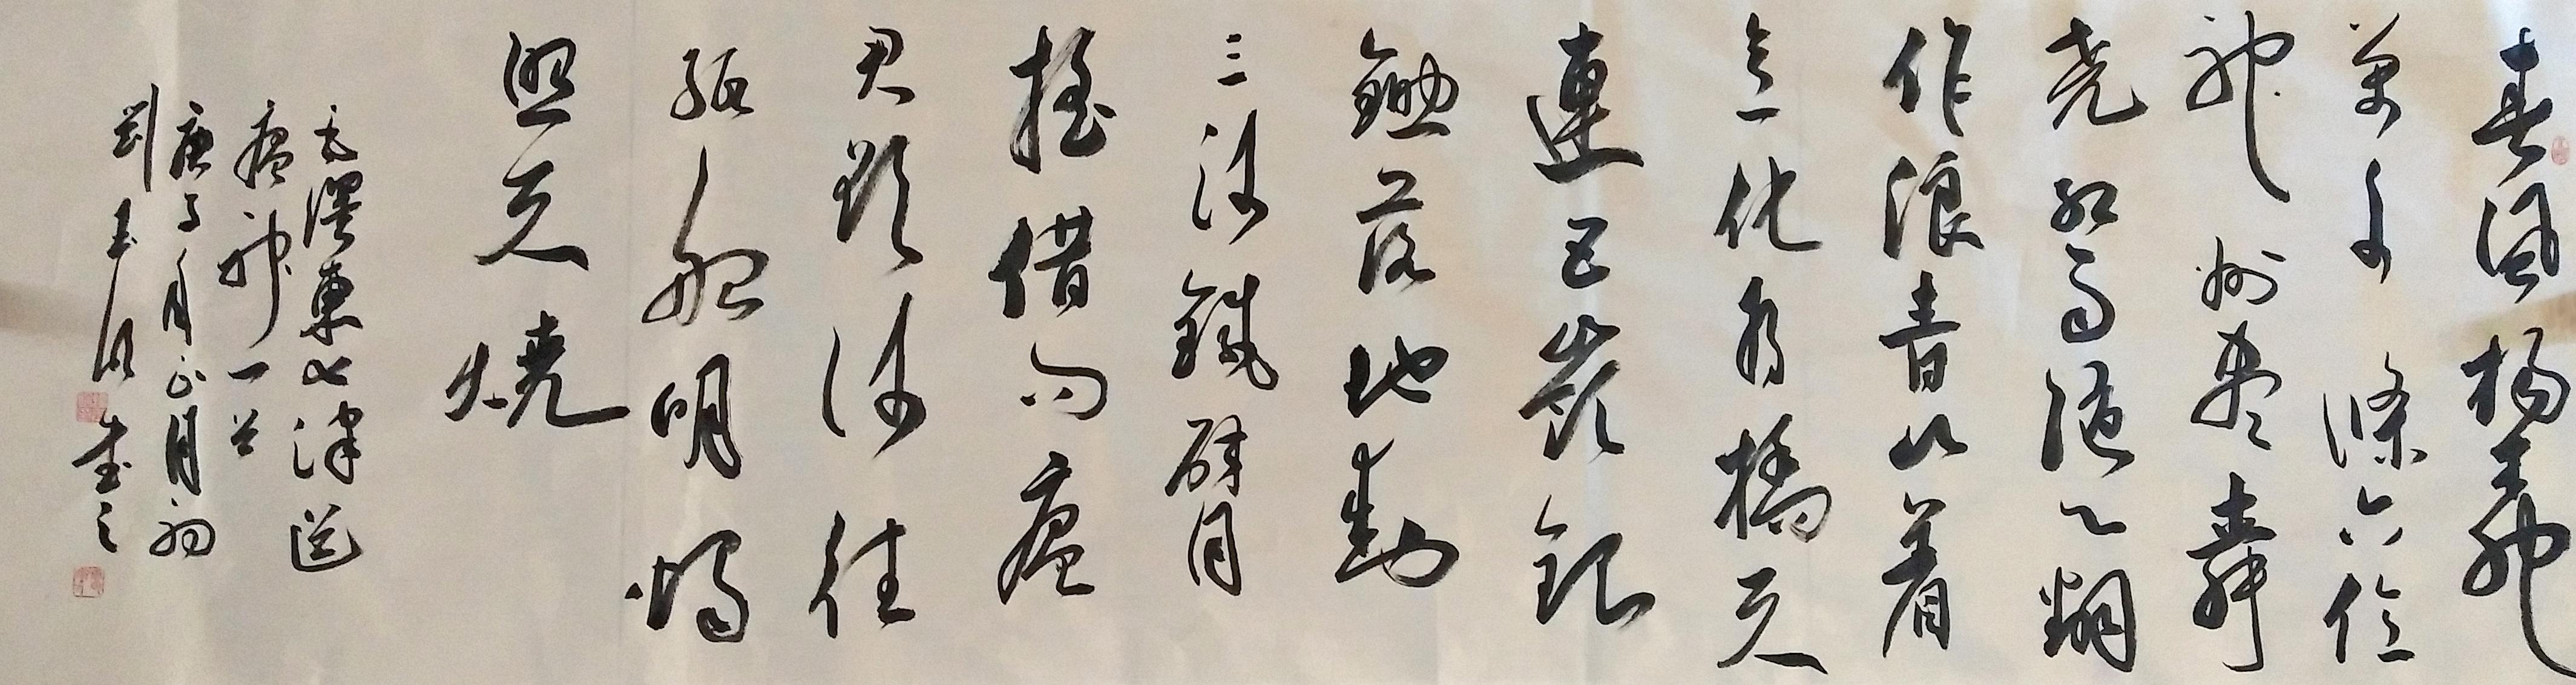 春風楊柳
萬千條六億
神州盡舜
堯紅雨随心翻
作浪青山着
意化为橋天
連五嶺銀
鋤落地動
三河鐵臂
摇借问瘟
君欲何往
紙船明燭
照天燒
毛澤東七律送
瘟神一首
庚子年正月初
劉玉書之